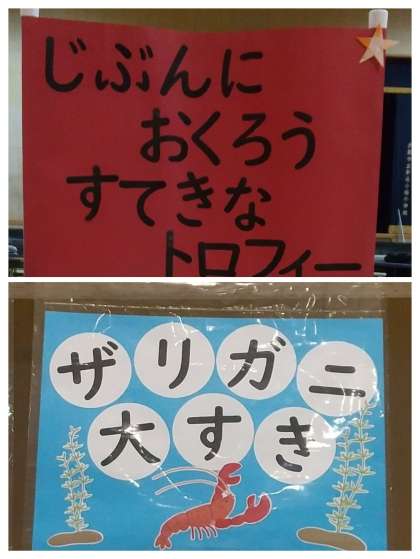 じぶんに
おくろう
すてきな
トロフィー
ザリガニ
大すき